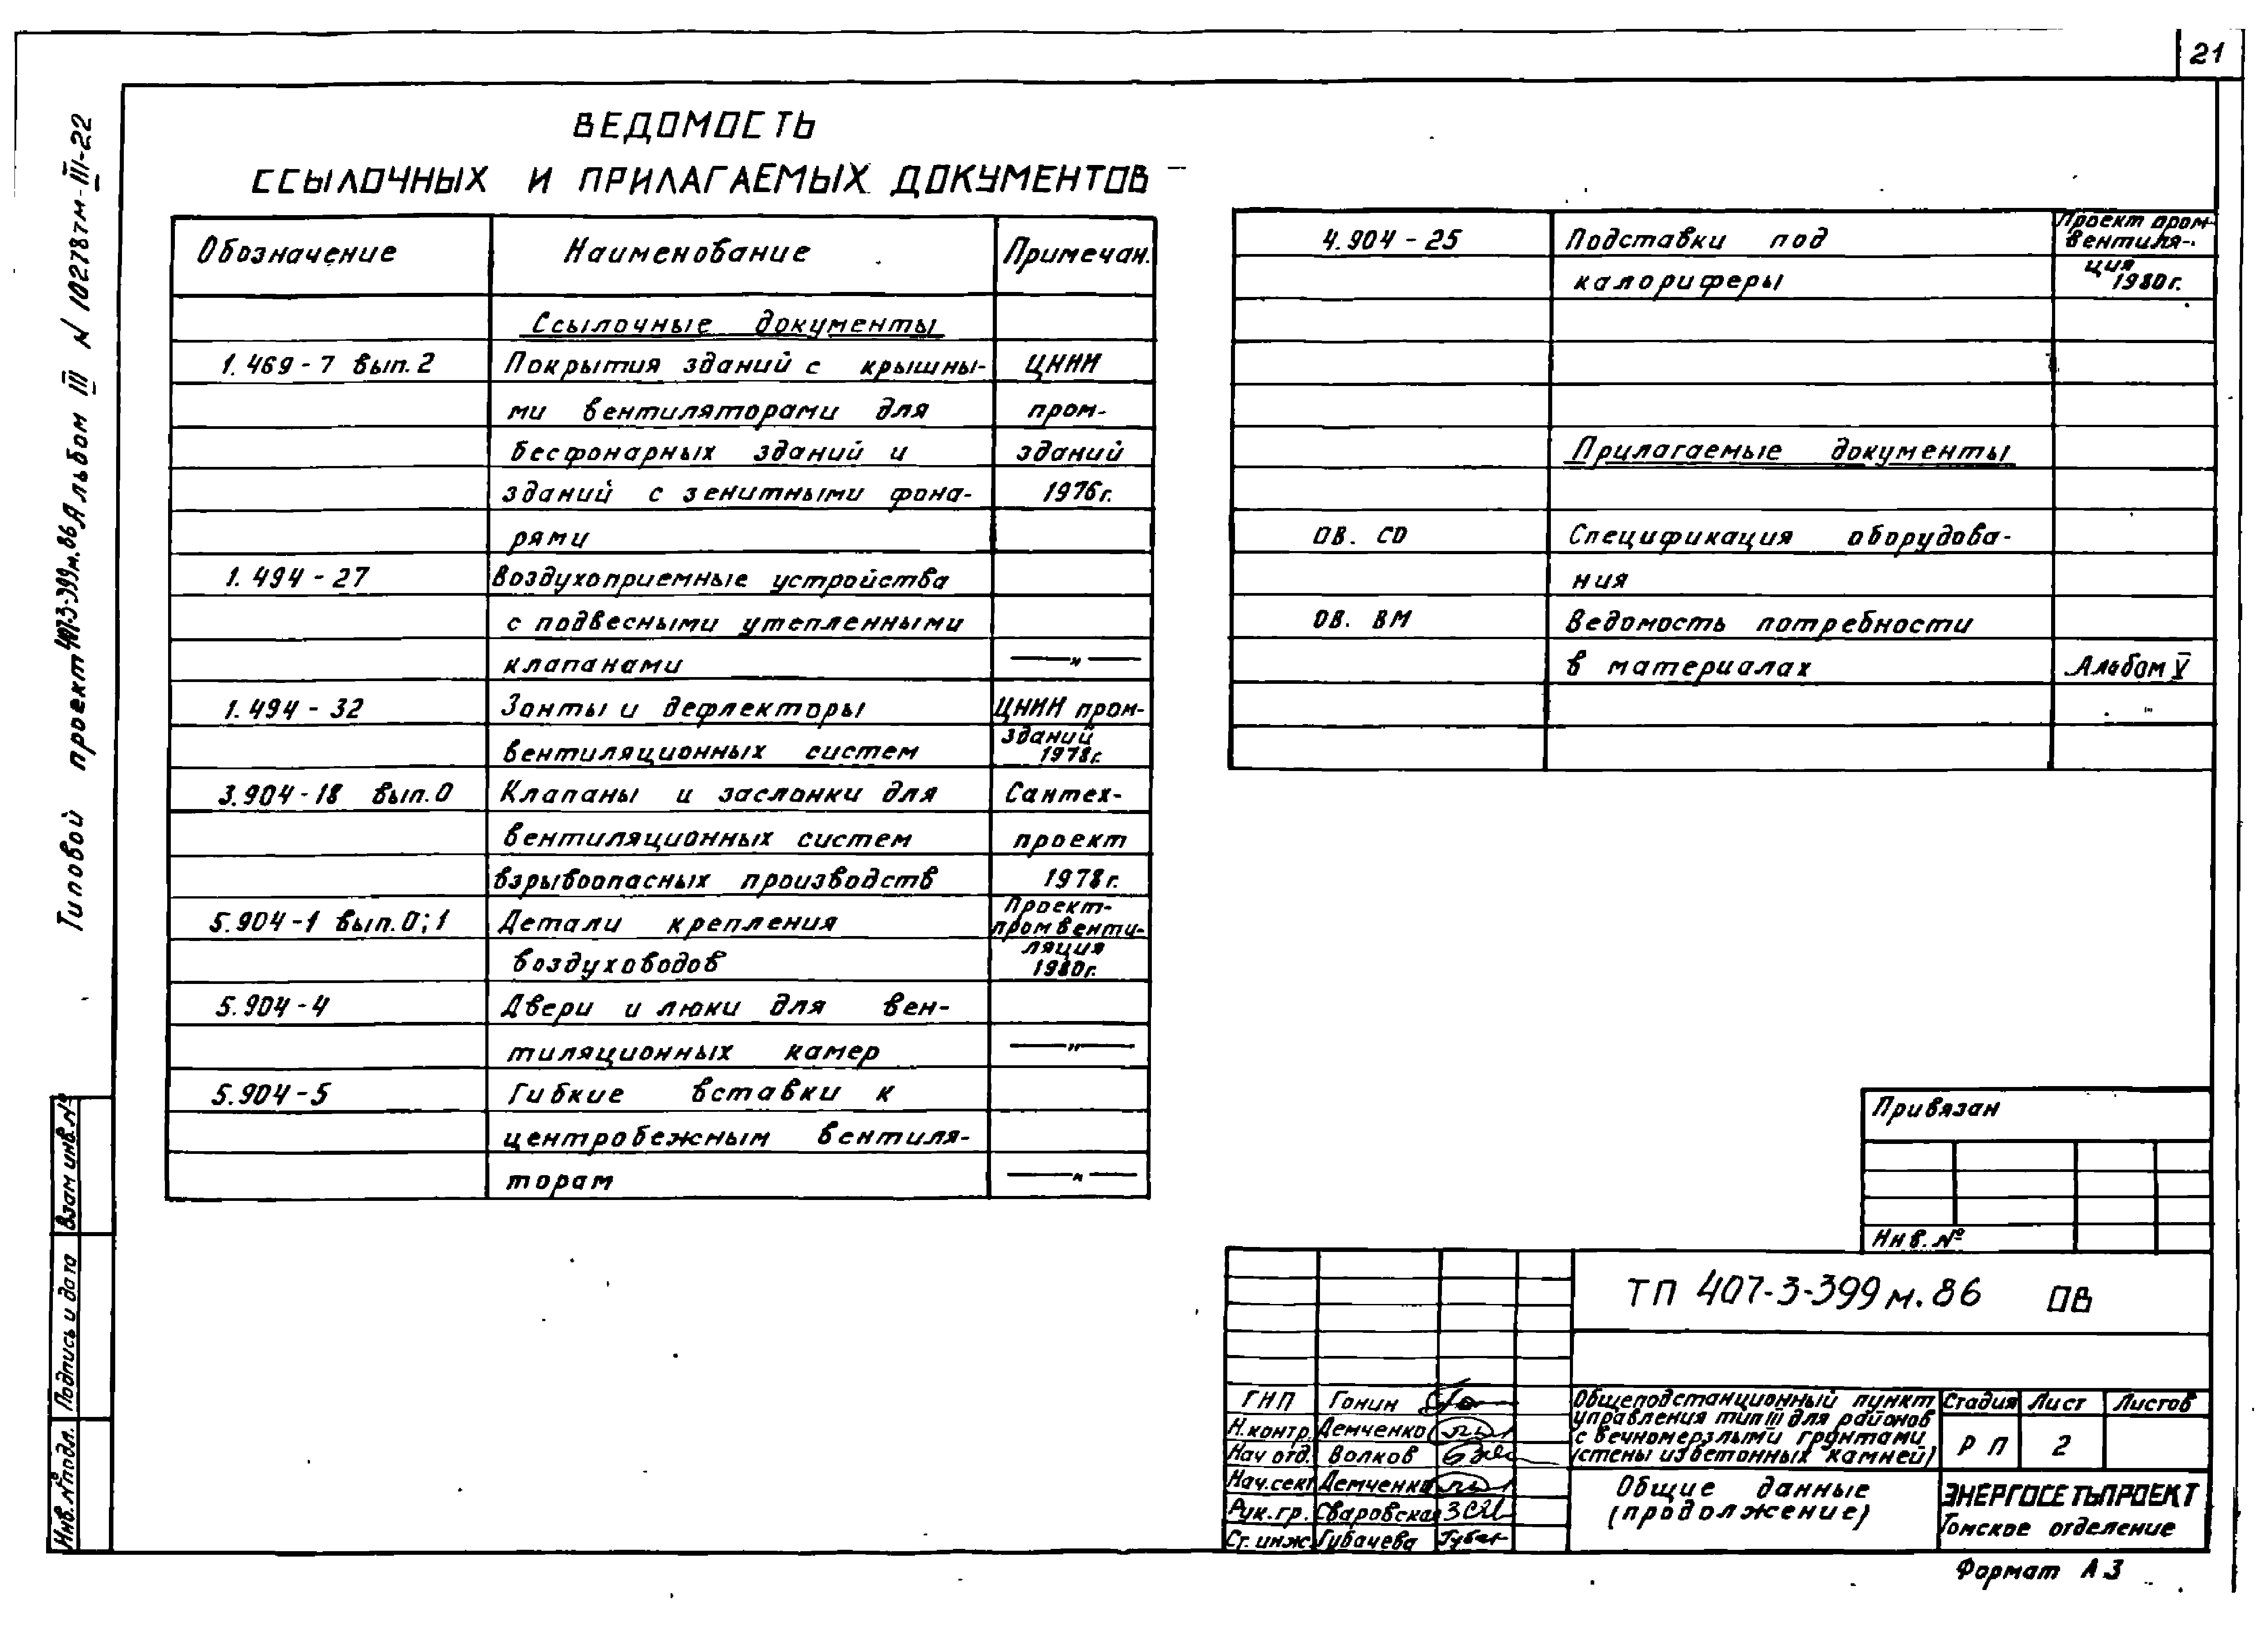 21
ВЕДОМОСТЬ
ССЫЛОЧНЫХ И ПРИЛАГАЕМЫХ ДОКУМЕНТОВ
Обозначение Наименование Примечан.
Ссылочные документы
1.469-7 вып.2 Покрытия зданий с крышны- ЦНИИ
ми вентиляторами для пром-
бесфонарных зданий и зданий
зданий с зенитными фона- 1976г.
рями
1.494-27 Воздухоприемные устройства
с подвесными утепленными
клапанами —"—
1.494-32 Зонты и дефлекторы ЦНИИ пром-
зданий
вентиляционных систем 1978г.
3.904-18 вып.0 Клапаны и заслонки для Сантех-
вентиляционных систем проект
взрывоопасных производств 1978г.
Проект-
5.904-1 вып.0;1 Детали крепления промвенти-
ляция
воздуховодов 1980г.
5.904-4 Двери и люки для вен-
тиляционных камер —"—
5.904-5 Гибкие вставки к
центробежным вентиля-
торам —"—
Проект пром-
4.904-25 Подставки под вентиля-
ция
калориферы 1980г.
Прилагаемые документы
ОВ. СО Спецификация оборудова-
ния
ОВ. ВМ Ведомость потребности
в материалах Альбом V
"
Типовой проект 407-3-399м.86 Альбом III N 10278тм-III-22
Взам инв.№
Подпись и дата
Инв.№подл.
Привязан
Инв.№
ТП 407-3-399м.86 ОВ
ГИП Гонин
Н.контр. Демченко
Нач отд. Волков
Нач.сект Демченко
Рук.гр. Сваровская
Ст.инж. Губачева
Общеподстанционный пункт
управления тип III для районов
с вечномерзлыми грунтами
(стены из бетонных камней)
Стадия Лист Листов
РП 2
Общие данные
(продолжение)
ЭНЕРГОСЕТЬПРОЕКТ
Томское отделение
Формат А3